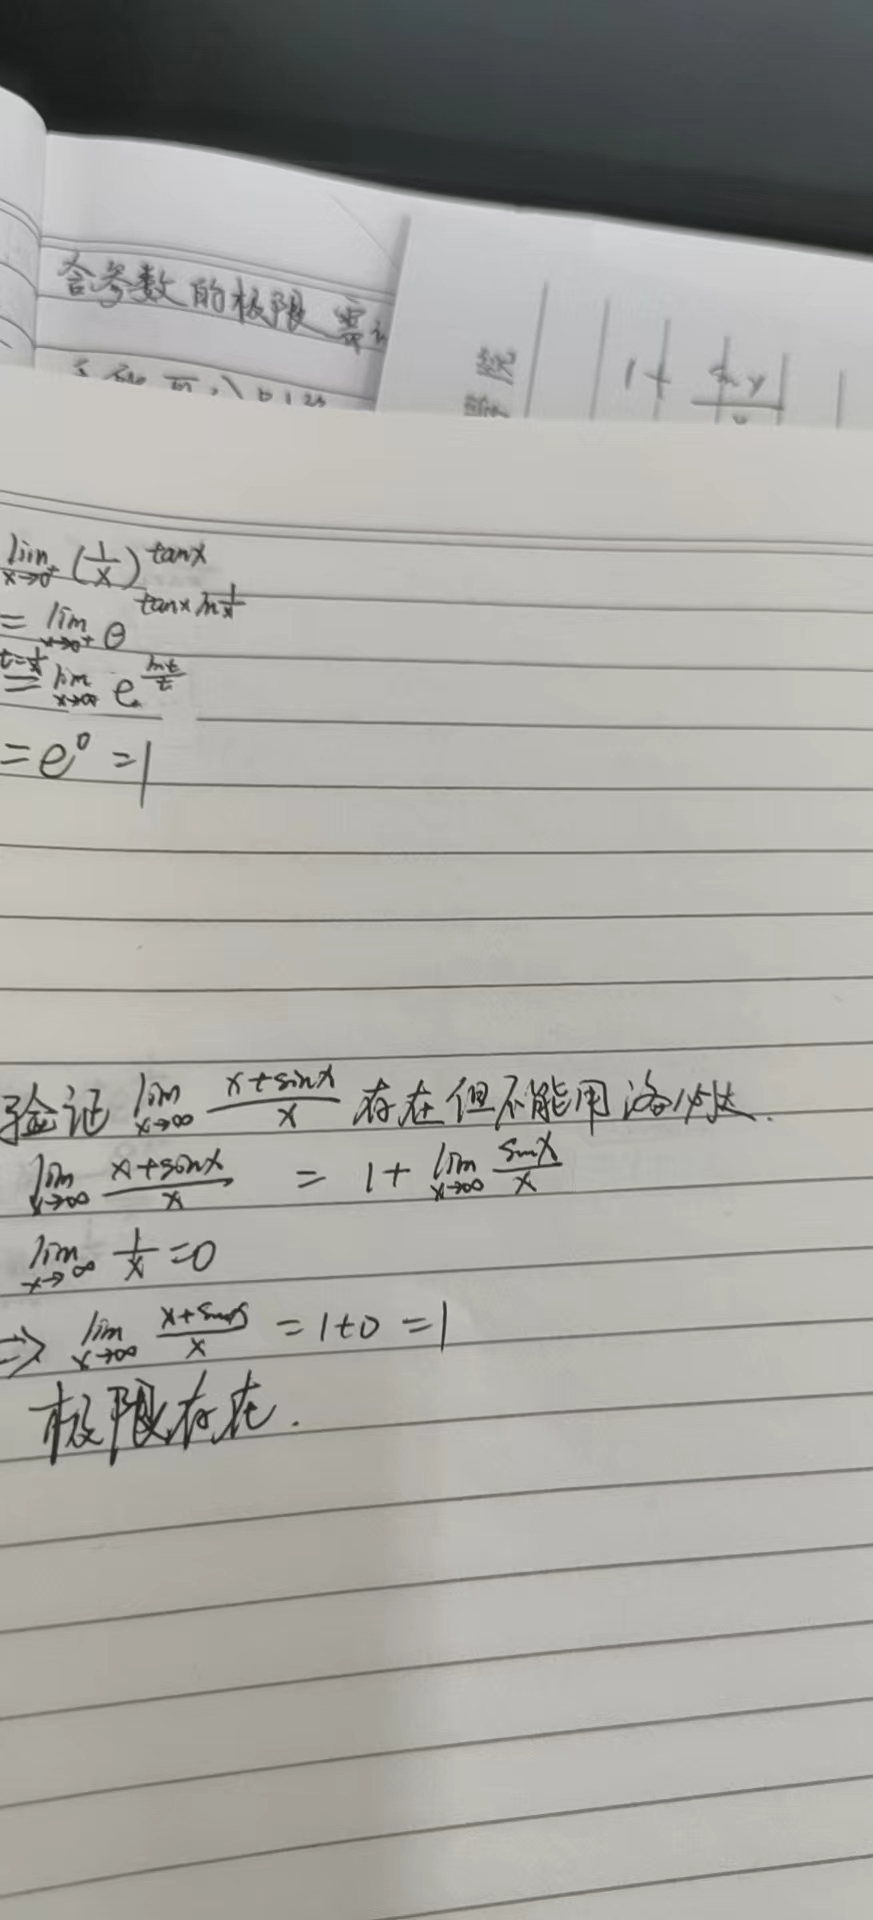 含参数的极限 需
1+ sin x
lim x→0⁺ (1/x)^tanx
= lim x→0⁺ e^(tanx ln 1/x)
t=1/x = lim x→∞ e^(lnt/t)
= e⁰ = 1
验证 lim x→∞ (x+sinx)/x 存在但不能用洛必达.
lim x→∞ (x+sinx)/x = 1+ lim x→∞ sinx/x
lim x→∞ 1/x = 0
⇒ lim x→∞ (x+sinx)/x = 1+0 = 1
极限存在.